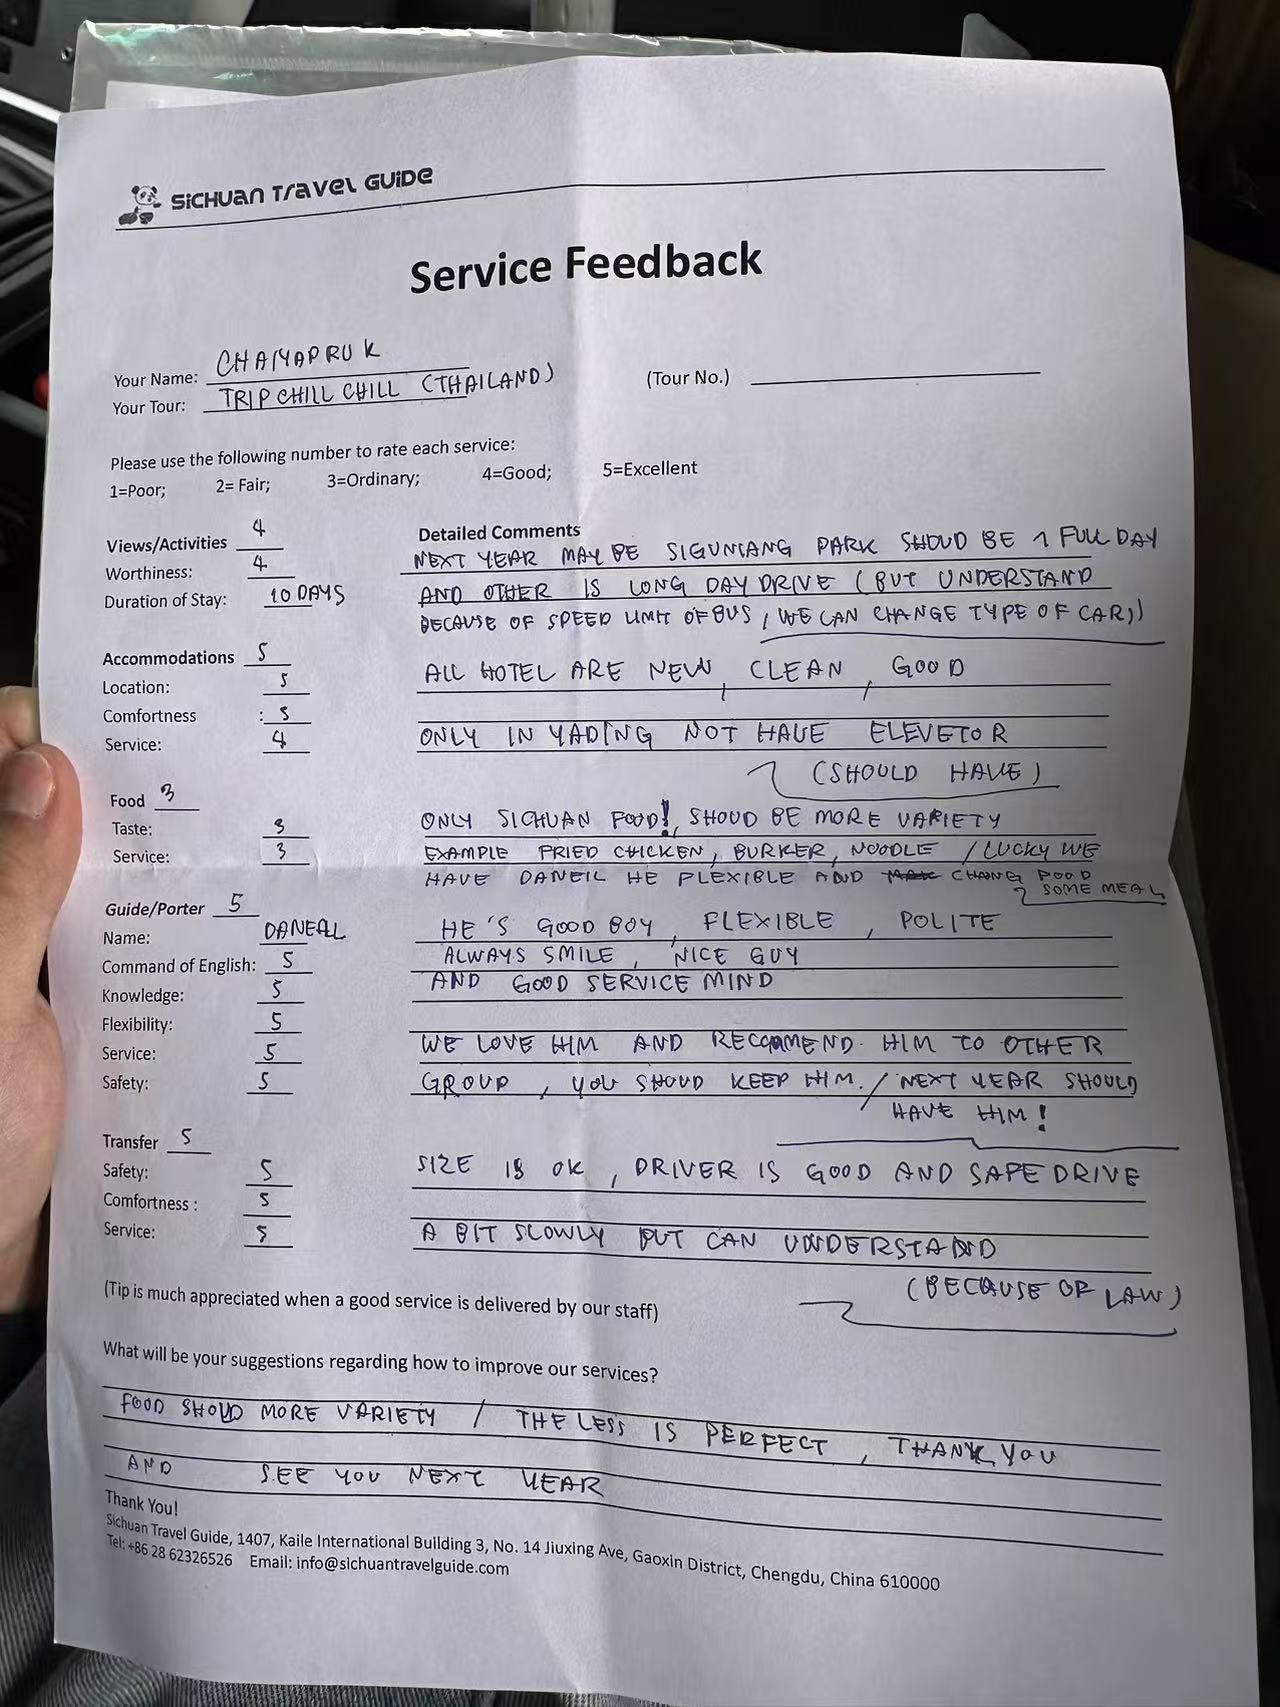 SICHUAN TRAVEL GUIDE
Service Feedback
Your Name: CHAIYAPRUK
Your Tour: TRIP CHILL CHILL (THAILAND)
(Tour No.)
Please use the following number to rate each service:
1=Poor; 2= Fair; 3=Ordinary; 4=Good; 5=Excellent
Views/Activities 4
Worthiness: 4
Duration of Stay: 10 DAYS
Detailed Comments
NEXT YEAR MAY BE SIGUNIANG PARK SHOUD BE 1 FULL DAY
AND OTHER IS LONG DAY DRIVE (BUT UNDERSTAND
BECAUSE OF SPEED LIMIT OF BUS, (WE CAN CHANGE TYPE OF CAR))
Accommodations 5
Location: 5
Comfortness : 5
Service: 4
ALL HOTEL ARE NEW, CLEAN, GOOD
ONLY IN YADING NOT HAVE ELEVETOR
(SHOULD HAVE)
Food 3
Taste: 3
Service: 3
ONLY SICHUAN FOOD!, SHOUD BE MORE VARIETY
EXAMPLE FRIED CHICKEN, BURKER, NOODLE / LUCKY WE
HAVE DANEIL HE FLEXIBLE AND CHANG FOOD
SOME MEAL
Guide/Porter 5
Name: DANEAL
Command of English: 5
Knowledge: 5
Flexibility: 5
Service: 5
Safety: 5
HE'S GOOD BOY, FLEXIBLE, POLITE
ALWAYS SMILE, NICE GUY
AND GOOD SERVICE MIND
WE LOVE HIM AND RECCOMEND HIM TO OTHER
GROUP, YOU SHOUD KEEP HIM. / NEXT YEAR SHOULD
HAVE HIM!
Transfer 5
Safety: 5
Comfortness : 5
Service: 5
SIZE IS OK, DRIVER IS GOOD AND SAFE DRIVE
A BIT SLOWLY BUT CAN UNDERSTAND
(BECAUSE OF LAW)
(Tip is much appreciated when a good service is delivered by our staff)
What will be your suggestions regarding how to improve our services?
FOOD SHOUD MORE VARIETY / THE LESS IS PERFECT, THANK YOU
AND SEE YOU NEXT YEAR
Thank You!
Sichuan Travel Guide, 1407, Kaile International Building 3, No. 14 Jiuxing Ave, Gaoxin District, Chengdu, China 610000
Tel: +86 28 62326526 Email: info@sichuantravelguide.com